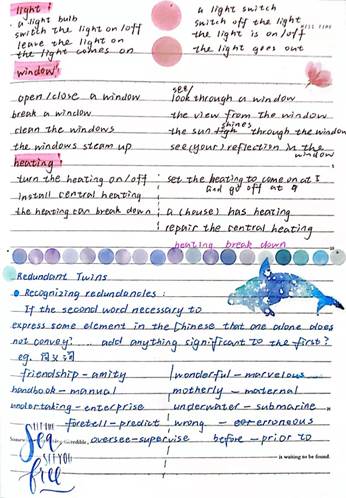 light :
a light bulb
a light switch
switch the light on/off
switch off the light
leave the light on
the light is on/off
the light comes on
the light goes out
window :
open/close a window
see/
look through a window
break a window
the view from the window
clean the windows
shines
the sun through the window
the windows steam up
see (your) reflection in the
window
heating :
turn the heating on/off
set the heating to come on at 1
and go off at 9
install central heating
the heating can break down
a (house) has heating
repair the central heating
heating break down
Redundant Twins
Recognizing redundancies :
If the second word necessary to
express some element in the Chinese that one alone does
not convey? ..... add anything significant to the first?
eg. 同义词
friendship - amity
wonderful - marvelous
handbook - manual
motherly - maternal
undertaking - enterprise
underwater - submarine
foretell - predict
wrong - erroneous
oversee - supervise
before - prior to
LET THE
Sea
SET YOU
free
incredible,
is waiting to be found.